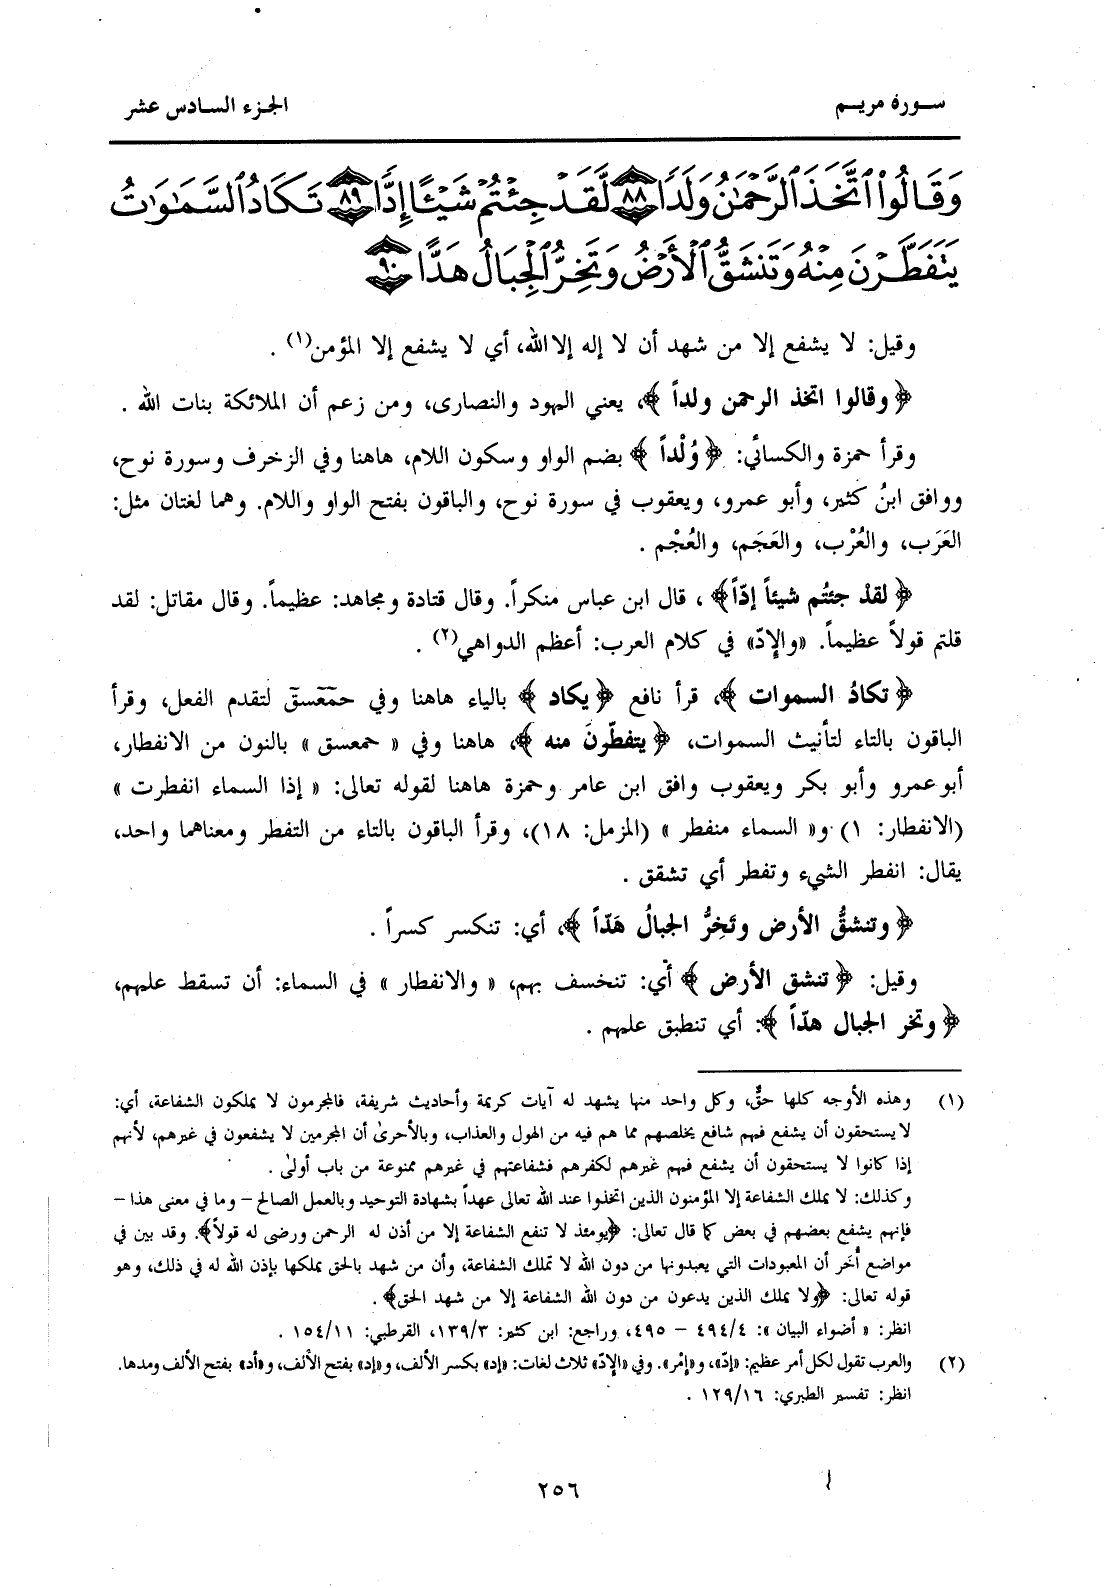 سورة مريم
الجزء السادس عشر
وَقَالُوا۟ ٱتَّخَذَ ٱلرَّحْمَٰنُ وَلَدًا ٨٨ لَّقَدْ جِئْتُمْ شَيْـًٔا إِدًّا ٨٩ تَكَادُ ٱلسَّمَٰوَٰتُ
يَتَفَطَّرْنَ مِنْهُ وَتَنشَقُّ ٱلْأَرْضُ وَتَخِرُّ ٱلْجِبَالُ هَدًّا ٩٠
وقيل: لا يشفع إلا من شهد أن لا إله إلا الله، أي لا يشفع إلا المؤمن(١) .
﴿وقالوا اتخذ الرحمن ولداً ﴾، يعني اليهود والنصارى، ومن زعم أن الملائكة بنات الله .
وقرأ حمزة والكسائي: ﴿وُلْداً ﴾ بضم الواو وسكون اللام، هاهنا وفي الزخرف وسورة نوح،
ووافق ابنُ كثير، وأبو عمرو، ويعقوب في سورة نوح، والباقون بفتح الواو واللام. وهما لغتان مثل:
العَرَب، والعُرْب، والعَجَم، والعُجْم .
﴿لقدْ جئتُم شيئاً إدّاً﴾ ، قال ابن عباس منكراً. وقال قتادة ومجاهد: عظيماً. وقال مقاتل: لقد
قلتم قولاً عظيماً. «والإدّ» في كلام العرب: أعظم الدواهي(٢) .
﴿تكادُ السموات ﴾، قرأ نافع ﴿يكاد ﴾ بالياء هاهنا وفي حمٓعٓسقٓ لتقدم الفعل، وقرأ
الباقون بالتاء لتأنيث السموات، ﴿يتفطّرنَ منه ﴾، هاهنا وفي « حمعسق » بالنون من الانفطار،
أبو عمرو وأبو بكر ويعقوب وافق ابن عامر وحمزة هاهنا لقوله تعالى: « إذا السماء انفطرت »
(الانفطار: ١) و« السماء منفطر » (المزمل: ١٨)، وقرأ الباقون بالتاء من التفطر ومعناهما واحد،
يقال: انفطر الشيء وتفطر أي تشقق .
﴿وتنشقُّ الأرض وتَخِرُّ الجبالُ هَدّاً ﴾، أي: تنكسر كسراً .
وقيل: ﴿تنشق الأرض ﴾ أي: تنخسف بهم، « والانفطار » في السماء: أن تسقط عليهم،
﴿وتخر الجبال هدّاً ﴾: أي تنطبق عليهم .
(١) وهذه الأوجه كلها حقٌّ، وكل واحد منها يشهد له آيات كريمة وأحاديث شريفة، فالمجرمون لا يملكون الشفاعة، أي:
لا يستحقون أن يشفع فيهم شافع يخلصهم مما هم فيه من الهول والعذاب، وبالأحرى أن المجرمين لا يشفعون في غيرهم، لأنهم
إذا كانوا لا يستحقون أن يشفع فيهم غيرهم لكفرهم فشفاعتهم في غيرهم ممنوعة من باب أولى .
وكذلك: لا يملك الشفاعة إلا المؤمنون الذين اتخذوا عند الله تعالى عهداً بشهادة التوحيد وبالعمل الصالح – وما في معنى هذا –
فإنهم يشفع بعضهم في بعض كما قال تعالى: ﴿يومئذ لا تنفع الشفاعة إلا من أذن له الرحمن ورضى له قولاً﴾. وقد بين في
مواضع أُخَر أن المعبودات التي يعبدونها من دون الله لا تملك الشفاعة، وأن من شهد بالحق يملكها بإذن الله له في ذلك، وهو
قوله تعالى: ﴿ولا يملك الذين يدعون من دون الله الشفاعة إلا من شهد الحق﴾ .
انظر: « أضواء البيان »: ٤٩٤/٤ – ٤٩٥، وراجع: ابن كثير: ١٣٩/٣، القرطبي: ١٥٤/١١ .
(٢) والعرب تقول لكل أمر عظيم: «إدّ»، و«إمْر». وفي «الإدّ» ثلاث لغات: «إد» بكسر الألف، و«إد» بفتح الألف، و«أد» بفتح الألف ومدها.
انظر: تفسير الطبري: ١٢٩/١٦ .
٢٥٦